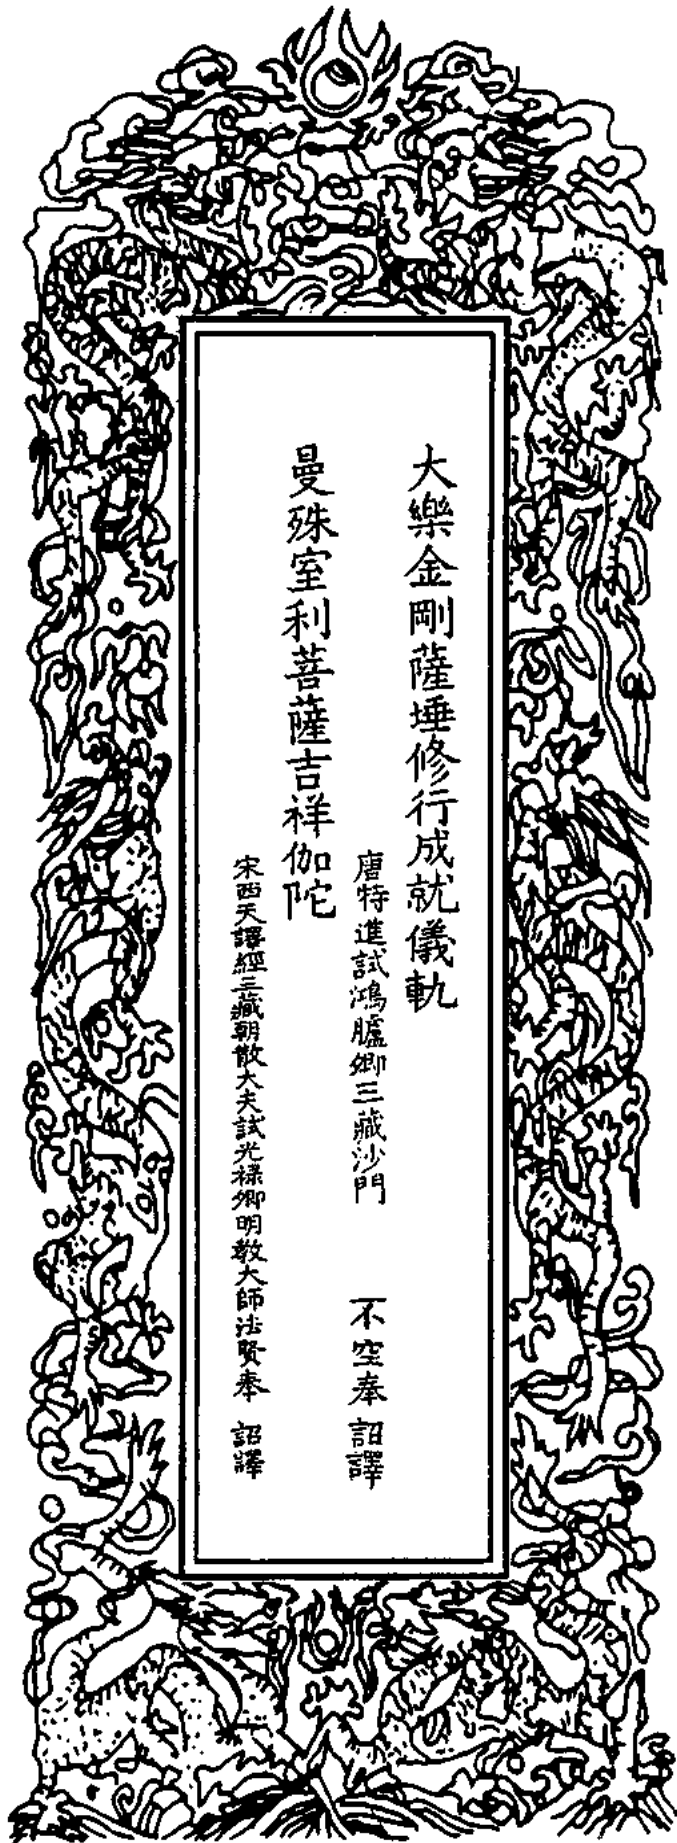 大樂金剛薩埵修行成就儀軌
唐特進試鴻臚卿三藏沙門 不空奉 詔譯
曼殊室利菩薩吉祥伽陀
宋西天譯經三藏朝散大夫試光祿卿明教大師法賢奉 詔譯